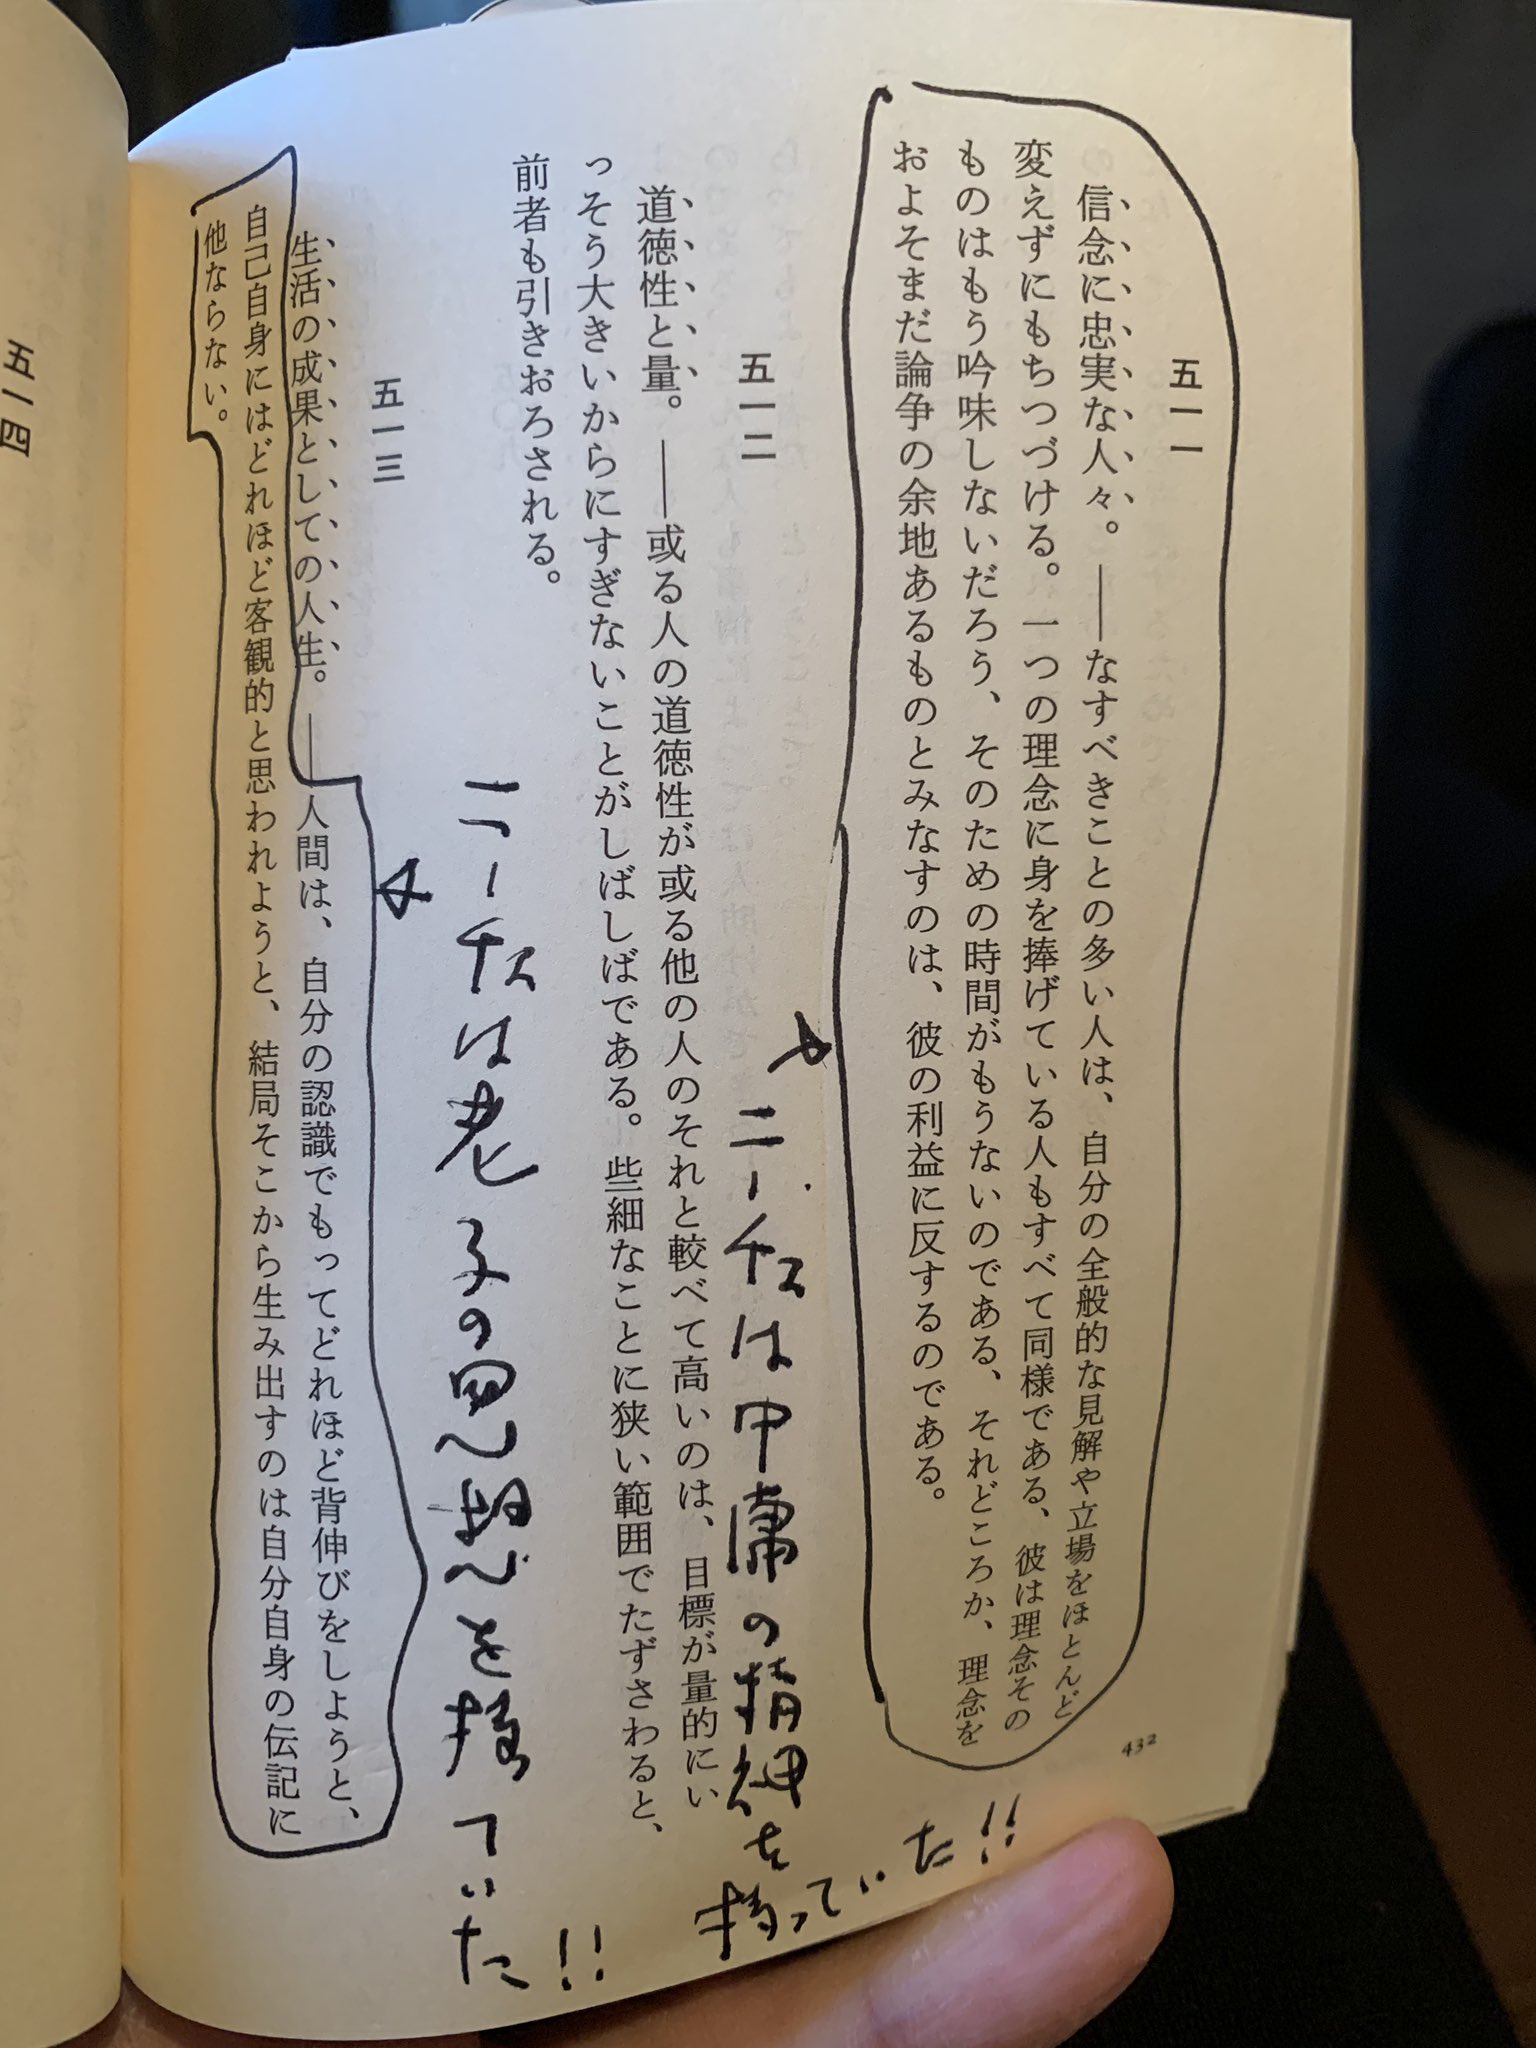 五一一
信念に忠実な人々。――なすべきことの多い人は、自分の全般的な見解や立場をほとんど
変えずにもちつづける。一つの理念に身を捧げている人もすべて同様である、彼は理念その
ものはもう吟味しないだろう、そのための時間がもうないのである、それどころか、理念を
およそまだ論争の余地あるものとみなすのは、彼の利益に反するのである。
ニーチェは中庸の精神を
持っていた!!
五一二
道徳性と量。――或る人の道徳性が或る他の人のそれと較べて高いのは、目標が量的にい
っそう大きいからにすぎないことがしばしばである。些細なことに狭い範囲でたずさわると、
前者も引きおろされる。
ニーチェは老子の思想を持っていた!!
五一三
生活の成果としての人生。――人間は、自分の認識でもってどれほど背伸びをしようと、
自己自身にはどれほど客観的と思われようと、結局そこから生み出すのは自分自身の伝記に
他ならない。
432
五一四